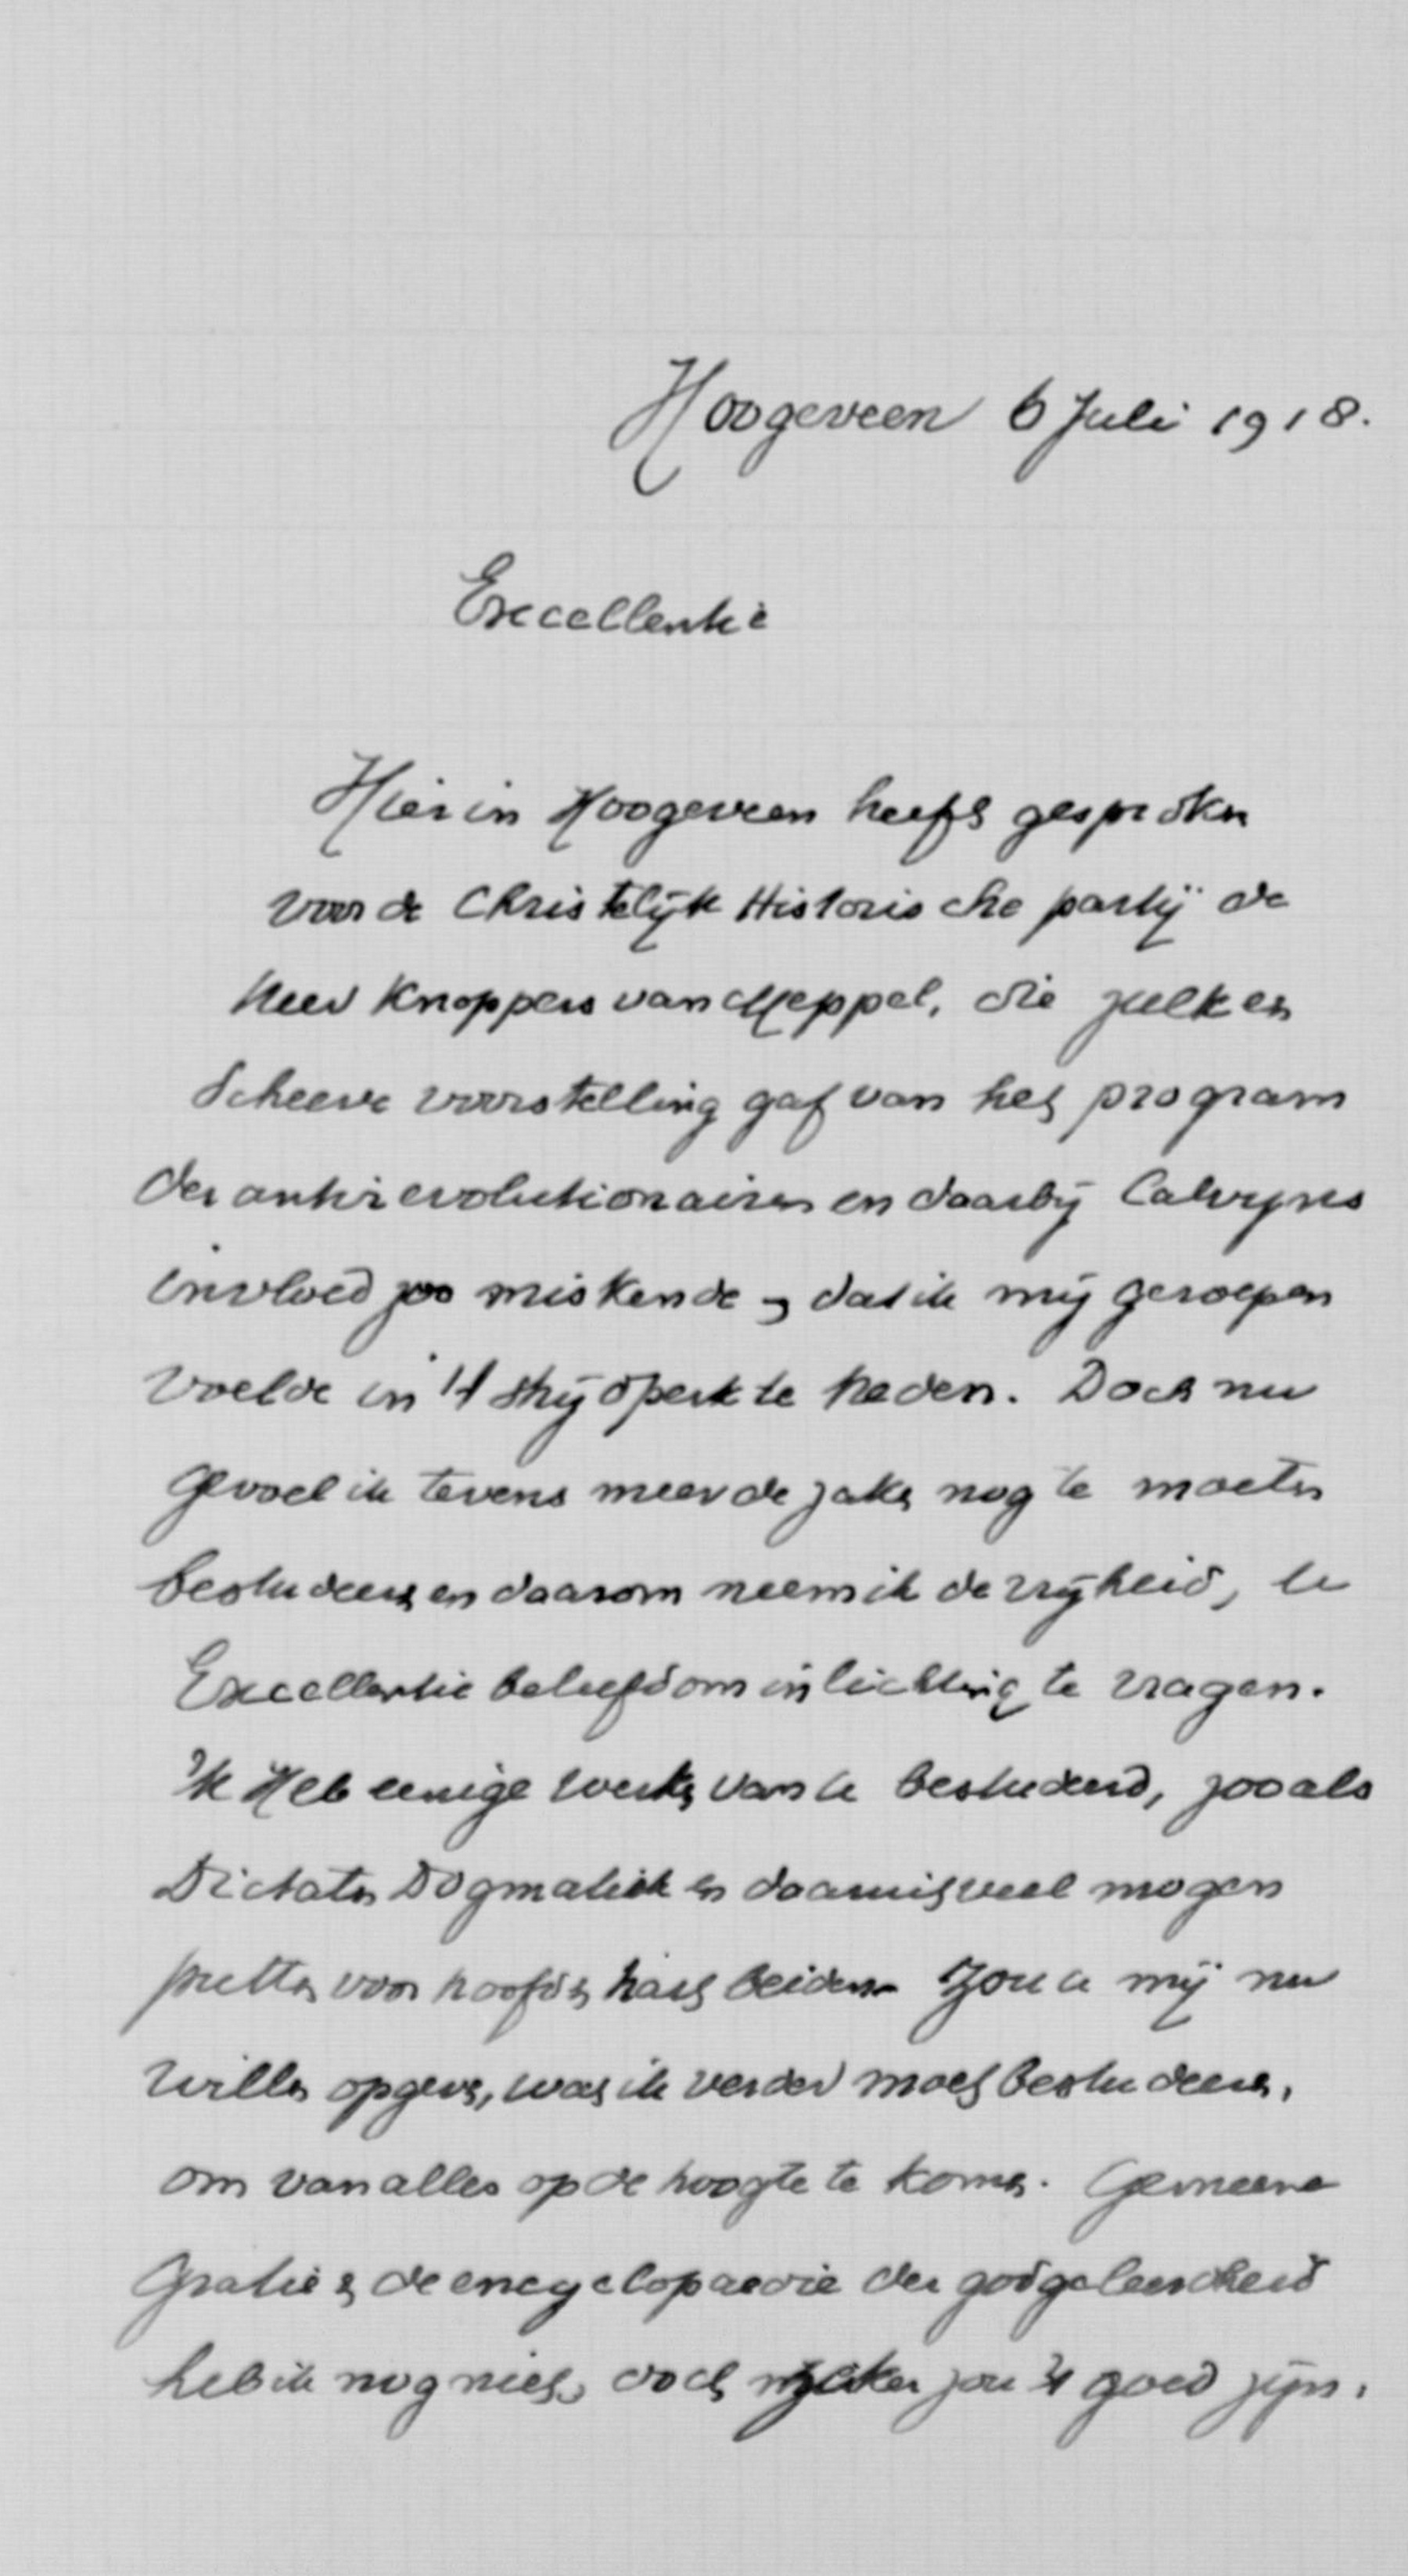 Hoogeveen 6 Juli 1918.
Excellentie
Hier in Hoogeveen heeft gesproken
voor de Christelijk Historische partij de
heer Knoppers van Meppel, die zulk een
scheeve voorstelling gaf van het program
der antirevolutionairen en daarbij Calvijns
invloed zoo miskende, dat ik mij geroepen
voelde in 't strijdperk te treden. Doch nu
gevoel ik tevens meer de zaken nog te moeten
bestudeeren en daarom neem ik de vrijheid, U
Excellentie beleefd om inlichting te vragen.
'k Heb eenige werken van U bestudeerd, zooals
Dictaten Dogmatiek en daaruit veel mogen
putten voor hoofd en hart beiden. Zou U mij nu
willen opgeven, wat ik verder moet bestudeeren,
om van alles op de hoogte te komen. Gemeene
Gratie en de encyclopaedie der godgeleerdheid
heb ik nog niet, doch zeker zou 't goed zijn.